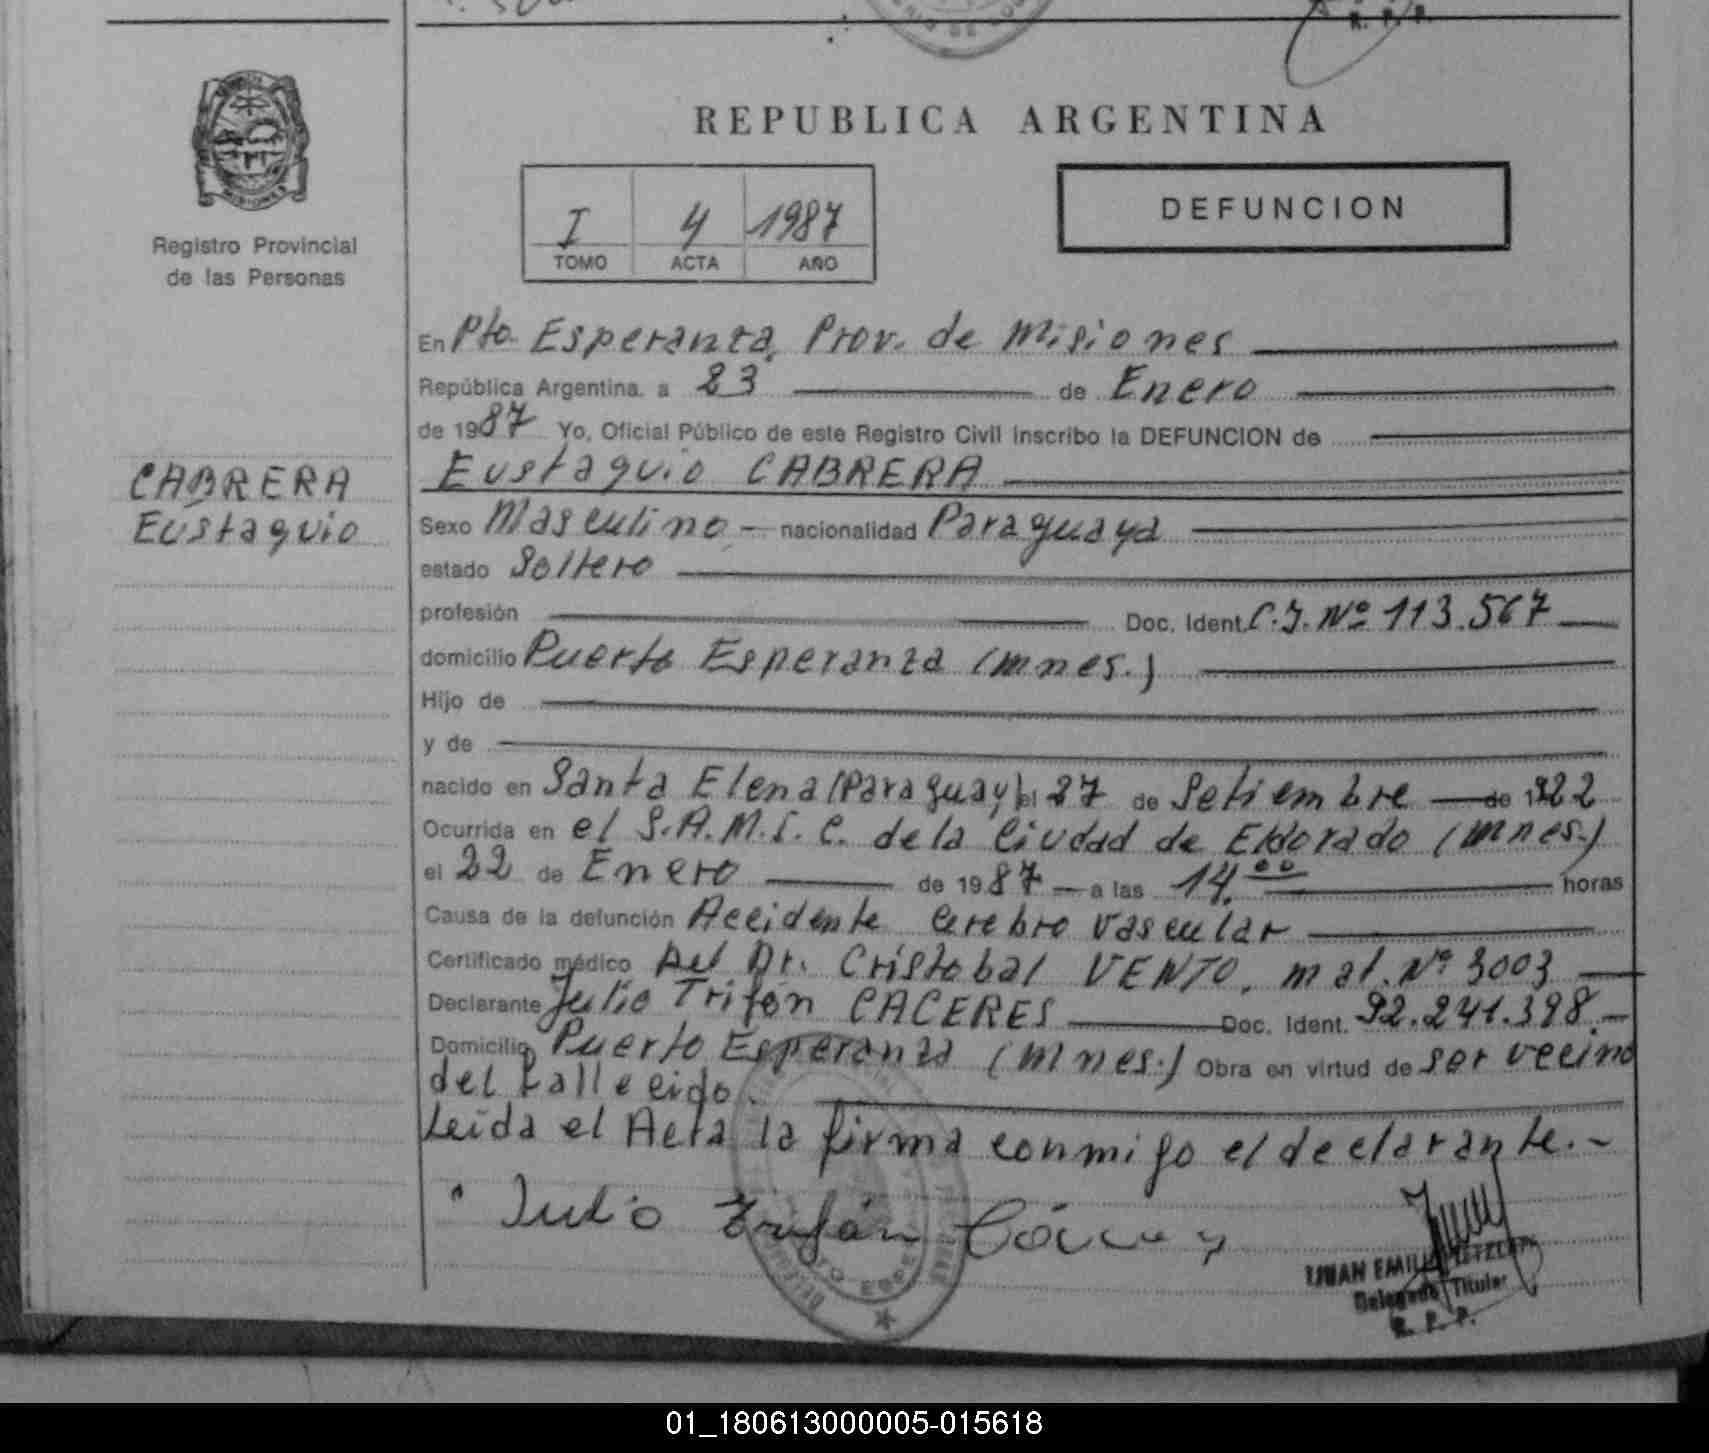 REPUBLICA ARGENTINA
I 4 1987
TOMO ACTA AÑO
DEFUNCION
Registro Provincial
de las Personas
CABRERA
Eustaquio
En Pto. Esperanza, Prov. de Misiones
República Argentina. a 23 de Enero
de 1987 Yo, Oficial Público de este Registro Civil inscribo la DEFUNCION de
Eustaquio CABRERA
Sexo Masculino - nacionalidad Paraguaya
estado Soltero
profesión Doc. Ident. C.I. Nº 113.567
domicilio Puerto Esperanza (Mnes.)
Hijo de
y de
nacido en Santa Elena (Paraguay) el 27 de Setiembre de 1922
Ocurrida en el S.A.M.I.C. de la Ciudad de Eldorado (Mnes.)
el 22 de Enero de 1987 a las 14.00 horas
Causa de la defunción Accidente Cerebro Vascular
Certificado médico Del Dr. Cristobal VENTO, mat. Nº 3003
Declarante Julio Trifón CACERES Doc. Ident. 92.241.398.-
Domicilio Puerto Esperanza (Mnes.) Obra en virtud de ser vecino
del fallecido.
Leida el Acta la firma conmigo el declarante.-
Julio Trifón Cáceres
JUAN EMILIO
Delegado Titular
R. P. P.
01_180613000005-015618